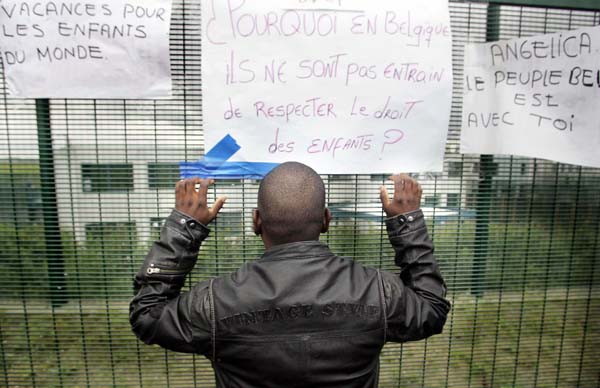 VACANCES POUR
LES ENFANTS
DU MONDE.
¿POURQUOI EN BELgiQUE
iLS NE SONT PAS ENTRAiN
de RESPECTER LE dROiT
des ENFANTS?
ANGELICA.
LE PEUPLE BEL
EST
AVEC TOi
VINTAGE STYLE